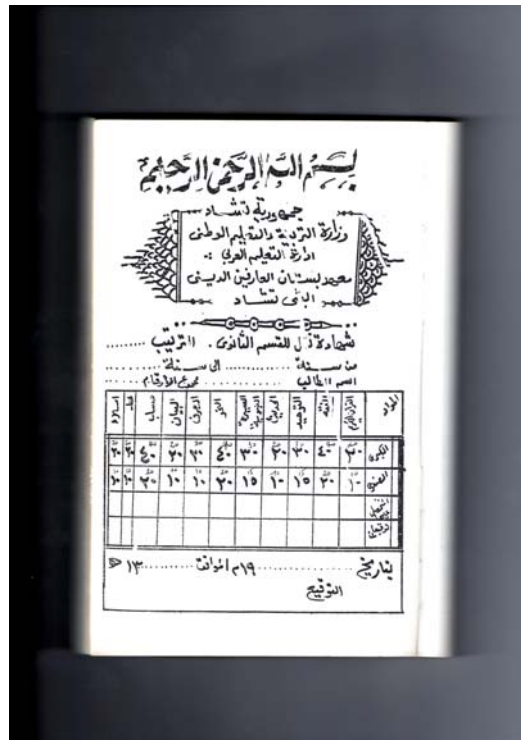 بسم الله الرحمن الرحيم
جمهورية تشاد
وزارة التربية والتعليم الوطني
ادارة التعليم العربي :-
معهد بستان العارفين الديني
تشاد
شهادة نقل للقسم الثانوي . الترتيب ........
من سنة ............ الى سنة ............
اسم الطالب ............ مجموع الأرقام ........
المواد القرآن الكريم الفقه التوحيد الحديث السيرة النبوية النحو الصرف البيان حساب خط
الكبرى ٢٠ ٤٠ ٣٠ ٢٠ ٣٠ ٤٠ ٢٠ ٢٠ ٤٠
الصغرى ١٠ ٢٠ ١٥ ١٠ ١٥ ٢٠ ١٠ ١٠ ٢٠
بتاريخ ............ ١٩م الموافق ............ ١٣ هـ
التوقيع